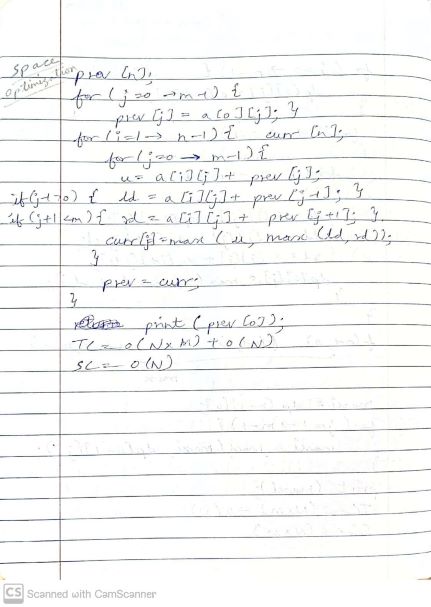 space optimization
prev [n];
for (j=0 → m-1) {
prev [j] = a[0][j]; }
for (i=1 → n-1) { curr [n];
for (j=0 → m-1) {
u = a[i][j] + prev [j];
if(j-1>0) { ld = a[i][j] + prev [j-1]; }
if (j+1<m) { rd = a[i][j] + prev [j+1]; }
curr[j] = max ( u, max (ld, rd));
}
prev = curr;
}
print (prev [0]);
TC = O(N×M) + O(N)
SC = O(N)
CS Scanned with CamScanner